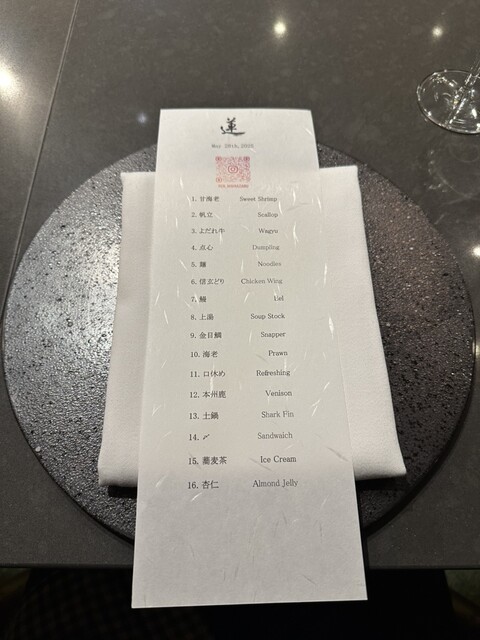 蓮
May 29th, 2025
1. 甘海老 Sweet Shrimp
2. 帆立 Scallop
3. よだれ牛 Wagyu
4. 点心 Dumpling
5. 麺 Noodles
6. 信玄どり Chicken Wing
7. 鰻 Eel
8. 上湯 Soup Stock
9. 金目鯛 Snapper
10. 海老 Prawn
11. 口休め Refreshing
12. 本州鹿 Venison
13. 土鍋 Shark Fin
14. 〆 Sandwaich
15. 蕎麦茶 Ice Cream
16. 杏仁 Almond Jelly